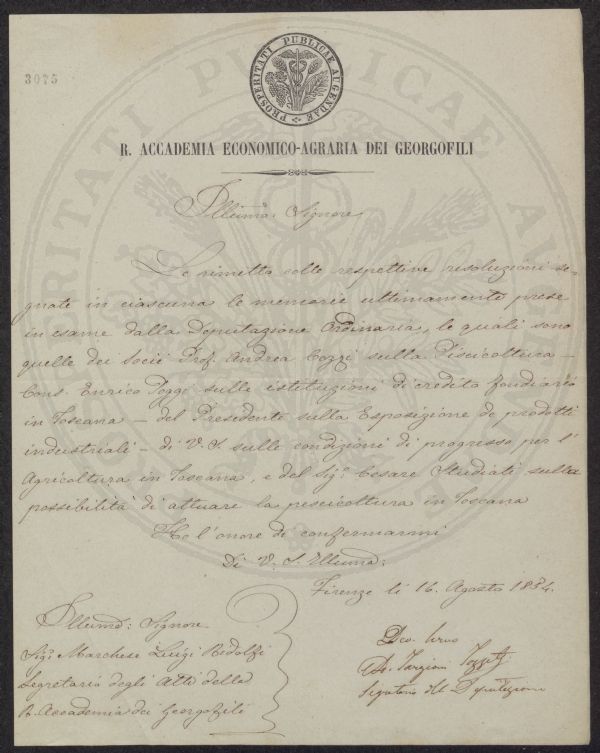 3075
PROSPERITATI PUBLICAE AUGENDAE
R. ACCADEMIA ECONOMICO-AGRARIA DEI GEORGOFILI
Illumo: Signore
Le rimetto colle respettive resoluzioni se-
gnate in ciascuna le memorie ultimamente prese
in esame dalla Deputazione Ordinaria, le quali sono
quelle dei Socii Prof. Andrea Cozzi sulla Piscicoltura –
Cons. Enrico Poggi sulle istituzioni di credito fondiario
in Toscana – del Presidente sulla Esposizione de prodotti
industriali – di V. S. sulle condizioni di progresso per l'
Agricoltura in Toscana, e del Sigr. Cesare Studiati sulla
possibilità di attuare la pescicoltura in Toscana
Ho l'onore di confermarmi
Di V. S. Illuma:
Firenze li 16. Agosto 1854.
Illumo: Signore
Sigr. Marchese Luigi Ridolfi
Segretario degli Atti della
R. Accademia dei Georgofili
Targioni Tozzetti
Segretario della Deputazione